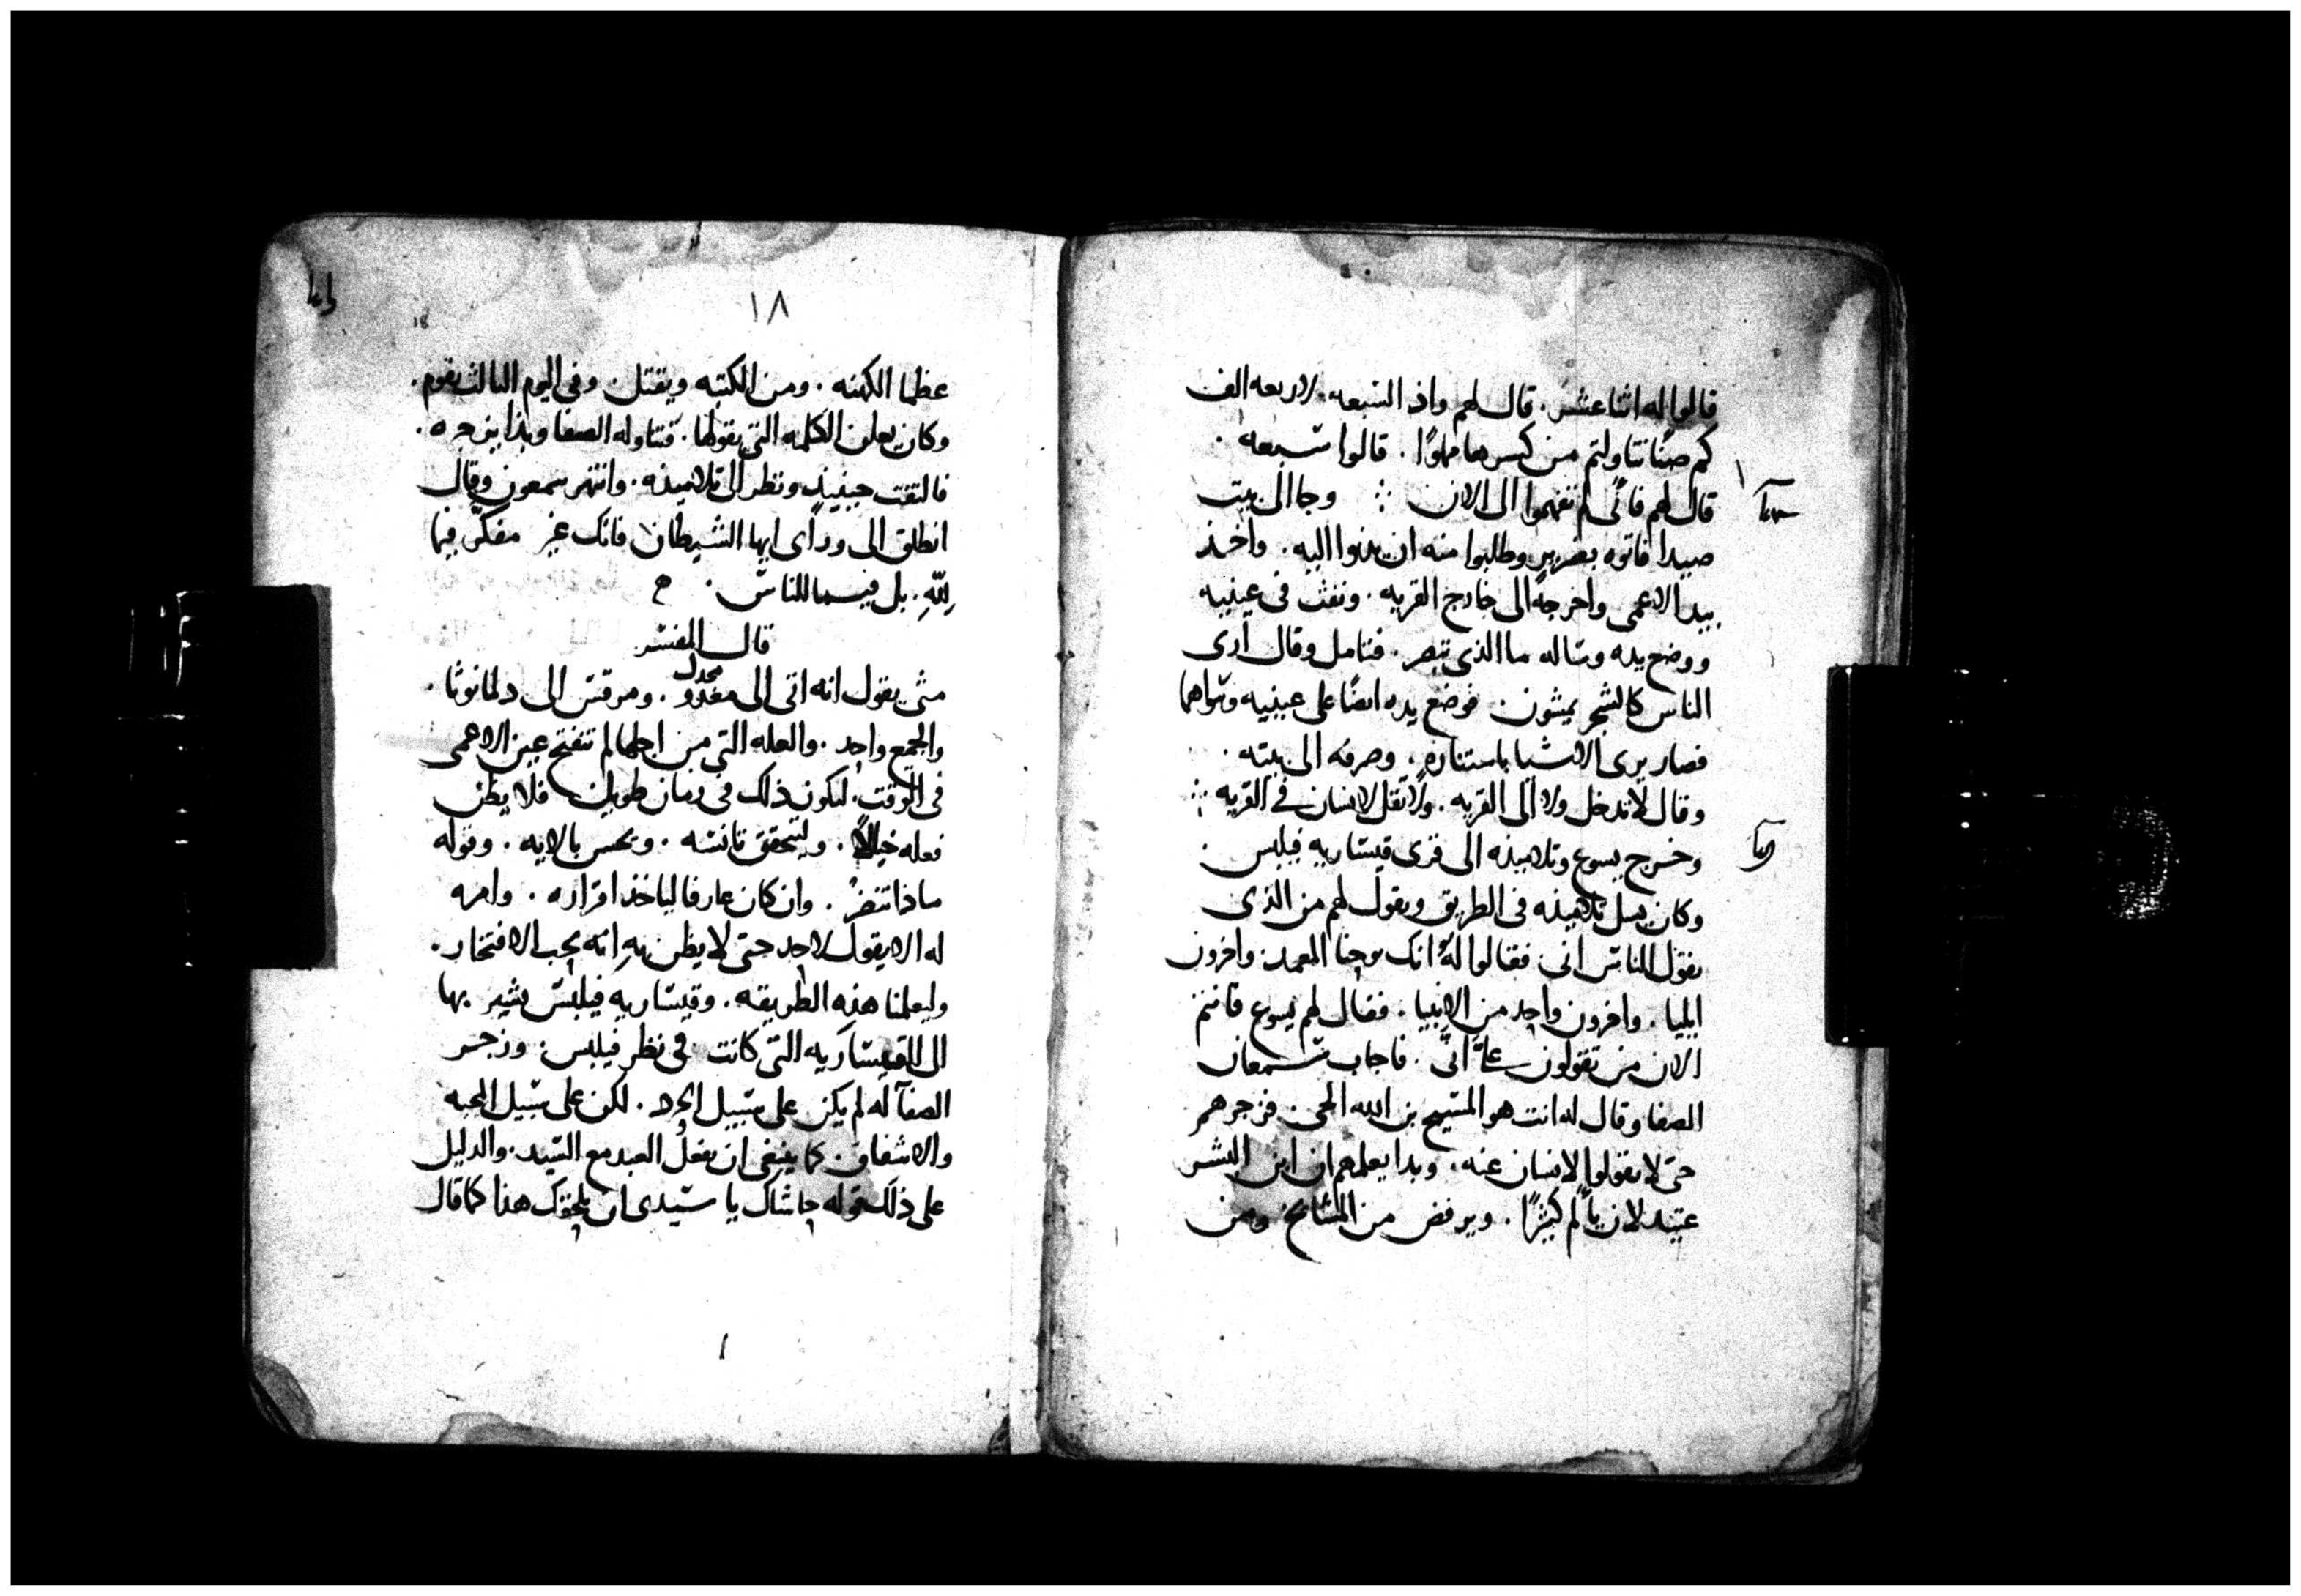 قالوا له اثنا عشر . قال لهم واذ السبعه . لاربعه الف
كم صنًا تناولتم من كسرها مملوًا . قالوا سبعه .
قال لهم فانى لم تفهموا الى الان ⁘ وجا الى بيت
صيدا فاتوه بضرير وطلبوا منه ان يدنوا اليه . واخذ
بيد الاعمى واخرجه الى خارج القريه . ونفث فى عينيه
ووضع يده وساله ما الذى تبصر . فتامل وقال ارى
الناس كالشجر يمشون . فوضع يده ايضًا على عينيه وسواهما
فصار يرى الاشيا باستناره . وصرفه الى بيته .
وقال لا تدخل ولا الى القريه . ولا تقل لانسان فى القريه ⁘
وخرج يسوع وتلاميذه الى قرى قيساريه فيلبس .
وكان يسل تلاميذه فى الطريق ويقول لهم من الذى
يقول الناس انى . فقالوا له انك يوحنا المعمد . واخرون
ايليا . واخرون واحد من الانبيا . فقال لهم يسوع فانتم
الان من تقولون على انى . فاجاب سمعان
الصفا وقال له انت هو المسيح بن الله الحى . فزجرهم
حتى لا يقولوا لانسان عنه . وبدا يعلمهم ان ابن البشر
عتيد لان يالم كثيرًا . ويرفض من المشايخ ومن
١٨
18
عظما الكهنه . ومن الكتبه ويقتل . وفى اليوم الثالث يقوم .
وكان يعلن الكلمه التى يقولها . فتناوله الصفا وبدا يزجره .
فالتفت حينيذ ونظر الى تلاميذه . وانتهر سمعون وقال
انطلق الى وراى ايها الشيطان فانك غير مفكر فيما
لله . بل فيما للناس .
قال المفسر
متى يقول انه اتى الى مغدو مجدل . ومرقس الى دلمانوثا .
والجمع واحد . والعله التى من اجلها لم تنفتح عين الاعمى
فى الوقت . ليكون ذلك فى زمان طويل فلا يظن
فعله خيالًا . وليتحقق تانسه . ويحس بالايه . وقوله
ماذا تنظر . وان كان عارفا لياخذ اقراره . وامره
له الا يقول لاحد حتى لا يظن به انه يحب الافتخار .
وليعلمنا هذه الطريقه . وقيساريه فيلبس يشير بها
الى القيساريه التى كانت فى نظر فيلبس . وزجر
الصفا له لم يكن على سبيل الحرد . لكن على سبيل المحبه
والاشفاق . كما ينبغى ان يفعل العبد مع السيد . والدليل
على ذلك قوله حاشاك يا سيدى ان يلحقك هذا كما قال